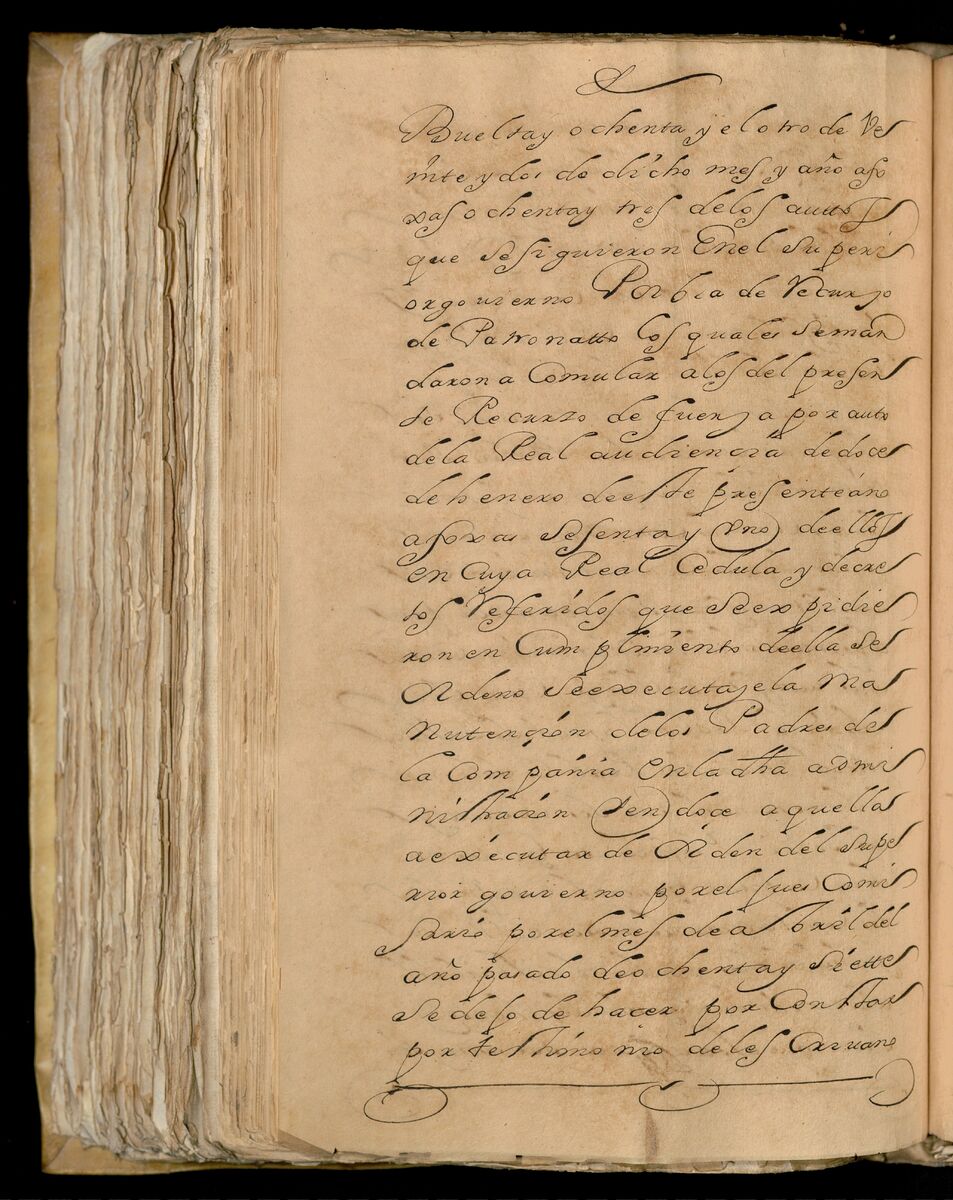 Bueltay ochenta y el otro de Ve
inte y dos de dicho mes y año afo
xas ochentay tres delos auttos
que se siguieron Enel superi
orgovierno Por bia de Recurso
de Patronatto los quales seman
daron a Comular alos del presen
te Recurzo de fuerza por auto
dela Real audiencia dedoce
de henero deeste presenteaño
afoxas sesentay Uno deellos
en Cuya Real Cedula y decre
tos Referidos que seexpidie
ron en Cumplimiento deella se
Ordeno seexecutasela Ma
nutencion delos Padres de
la Compañia Enla dha admi
nistracion Yendose aquella
aexecutar de Orden del supe
rior govierno porel jues Comi
sario porelmes deabril del
año pasado deochentay siette
se dejo de hacer por Constar
por testimonio deles Crivano